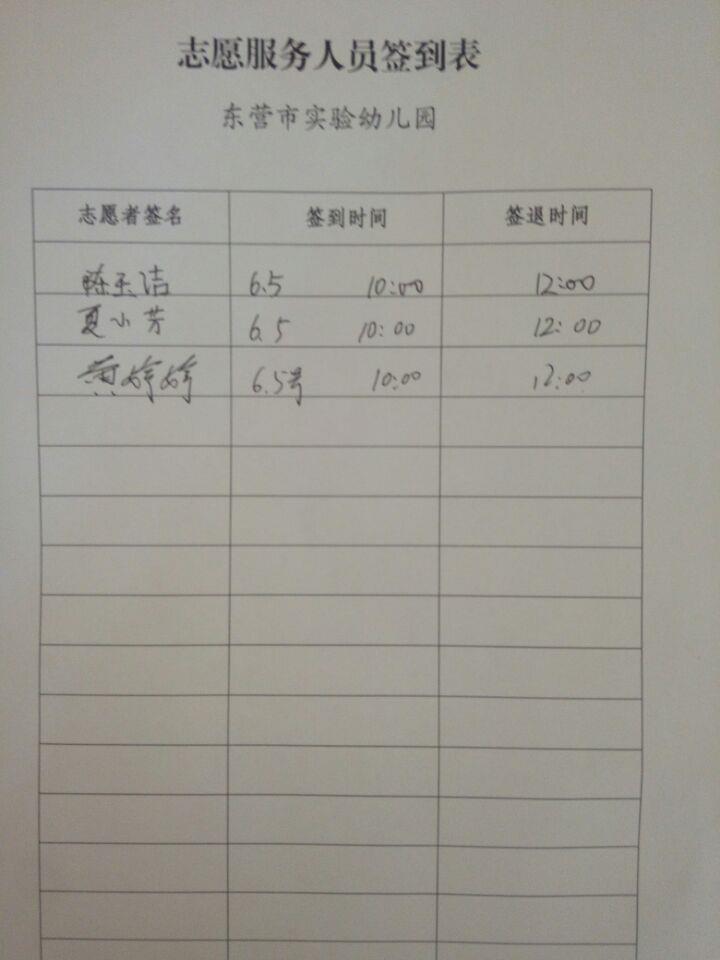 志愿服务人员签到表
东营市实验幼儿园
志愿者签名 签到时间 签退时间
陈玉洁 6.5 10:00 12:00
夏小芳 6.5 10:00 12:00
黄婷婷 6.5号 10:00 12:00